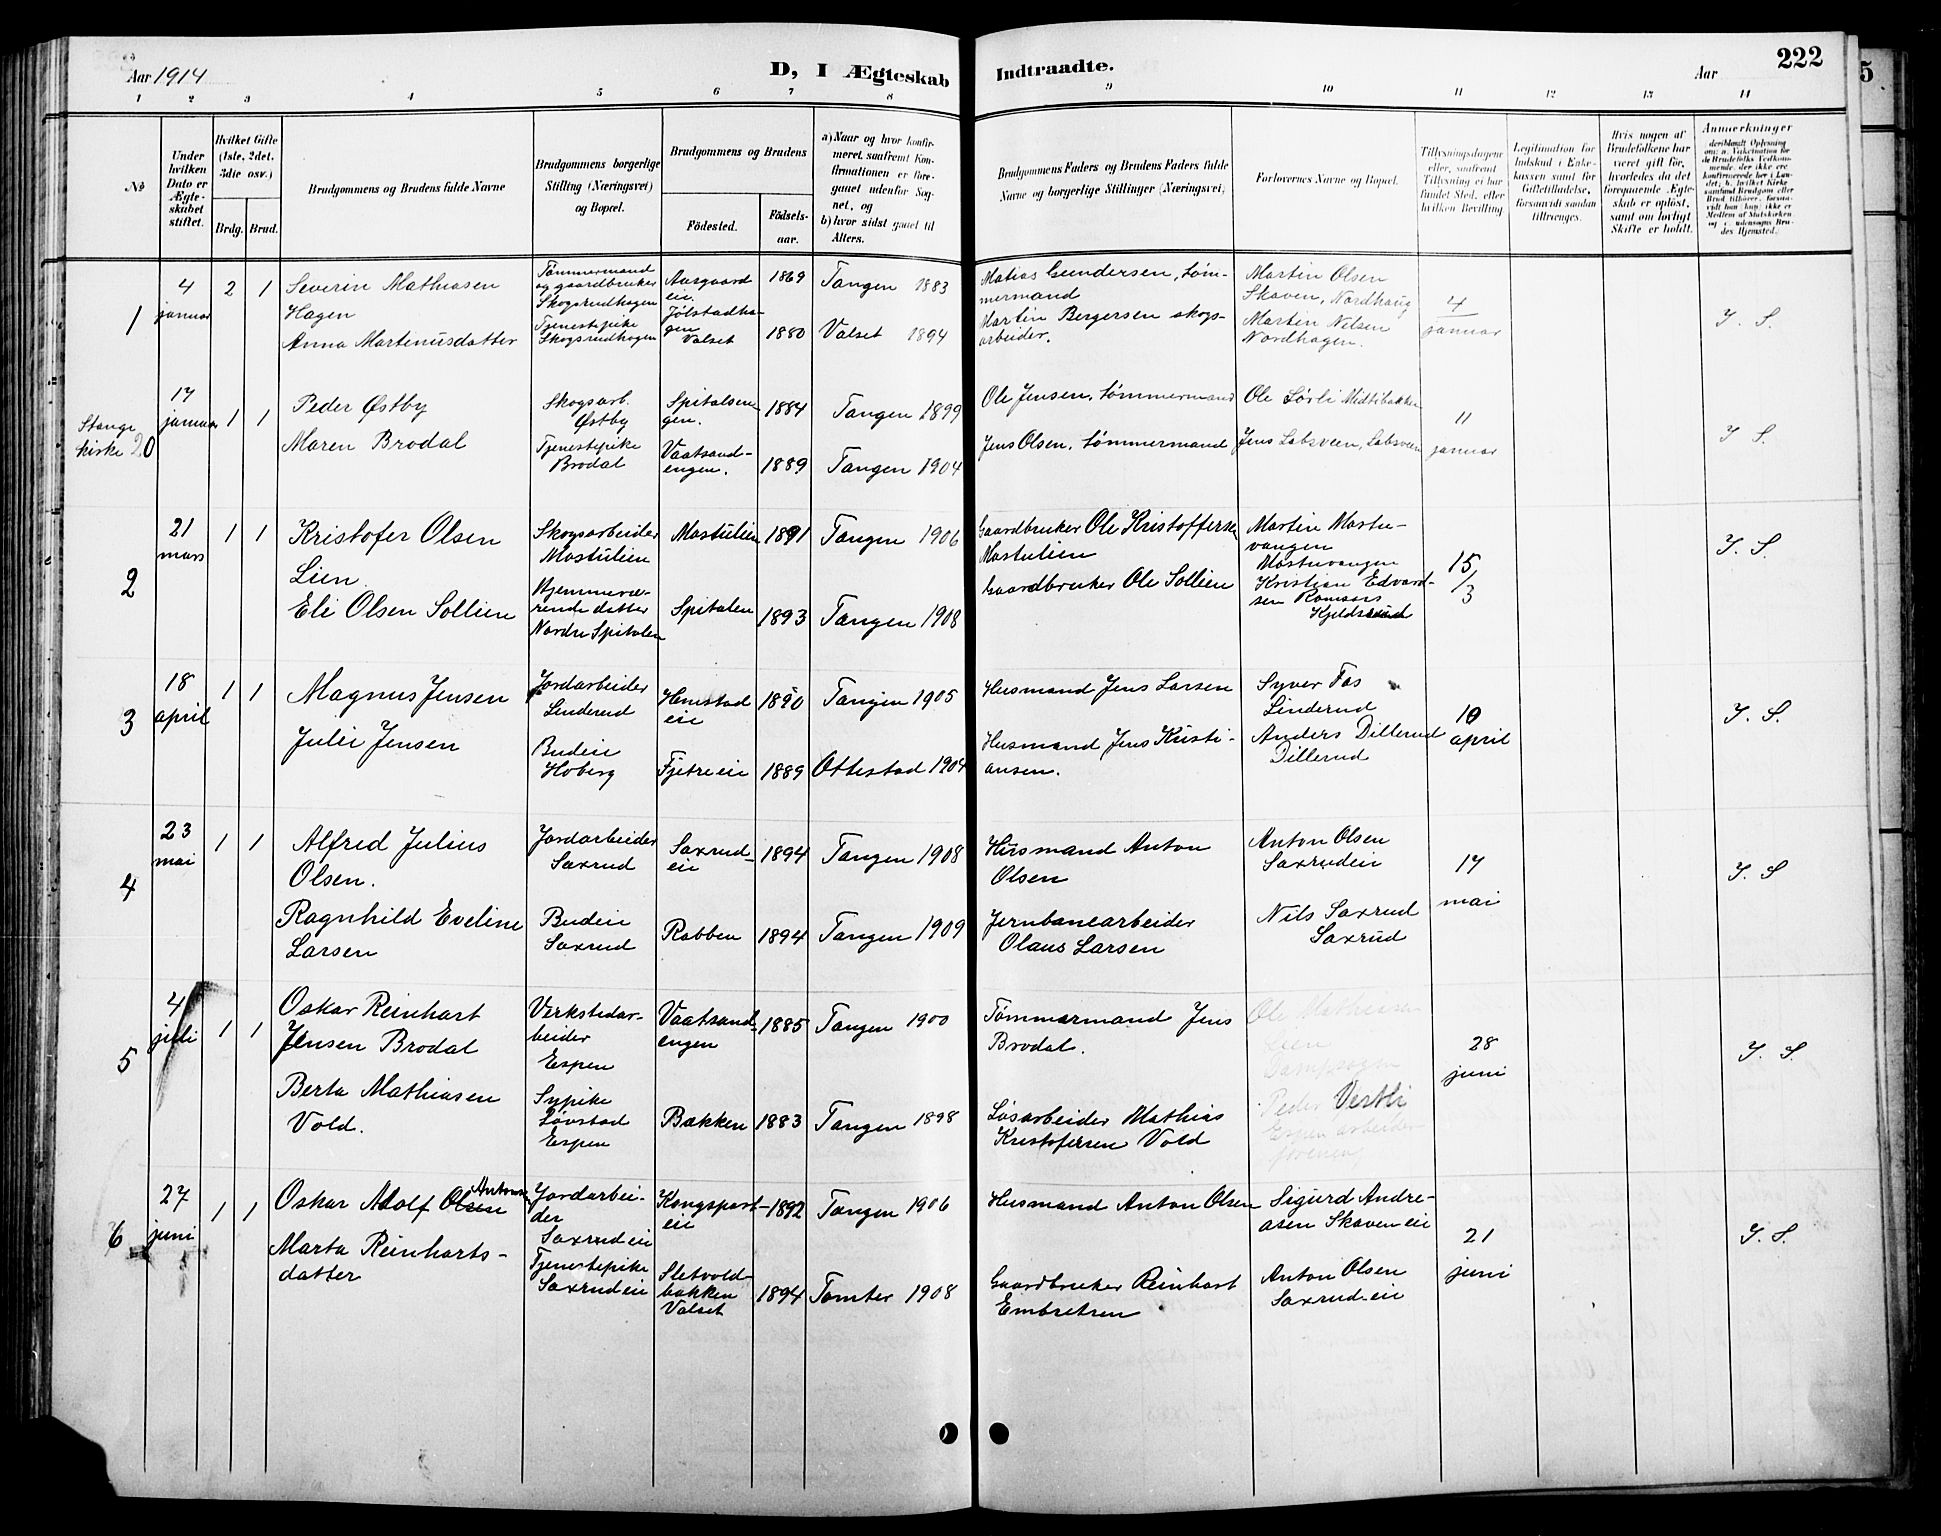 Aar 1914
D, I Ægteskab
Indtraadte.
Aar
222
5
1 2 3 4 5 6 7 8 9 10 11 12 13 14
No
Under
hvilken
Dato er
Ægte-
skabet
stiftet.
Hvilket Gifte
(1ste, 2det,
3die osv.)
Brdg. Brud.
Brudgommens og Brudens fulde Navne
Brudgommens borgerlige
Stilling (Næringsvei)
og Bopæl.
Brudgommens og Brudens
Fødested.
Fødsels-
aar.
a) Naar og hvor konfir-
meret, saafremt Kon-
firmationen er fore-
gaaet udenfor Sog-
net, og
b) hvor sidst gaaet til
Alters.
Brudgommens Faders og Brudens Faders fulde
Navne og borgerlige Stillinger (Næringsvei)
Forlovernes Navne og Bopæl.
Tillysningsdagene
eller, saafremt
Tillysning ei har
fundet Sted, efter
hvilken Bevilling
Legitimation for
Indskud i Enke-
kassen samt for
Giftetilladelse,
forsaavidt saadan
tiltrænges.
Hvis nogen af
Brudefolkene har
været gift før,
hvorledes da det
foregaaende Ægte-
skab er opløst,
samt om lovligt
Skifte er holdt.
Anmerkninger
1
4
januar
2 1
Severin Mathiasen
Hagen
Anna Martinusdatter
Tømmermand
og gaardbruker
Skogsrudhagen
Tjenestepike
Skogsrudhagen
Aasgaard
eie.
Jølstadha-
gen
Valset
1869
1880
Tangen 1883
Valset 1894
Matias Gundersen, tøm-
mermand
Martin Bergersen skogs-
arbeider.
Martin Olsen
Skaven, Nordhaug
Martin Nilsen
Nordhagen.
4
januar
I. S.
Stange
kirke 20
17
januar
1 1
Peder Østby
Maren Brodal
Skogsarb.
Østby
Tjenestepike
Brodal
Spitalsen-
gen.
Vaatsand-
engen.
1884
1889
Tangen 1899
Tangen 1904
Ole Jensen, tømmermand
Jens Olsen, tømmermand
Ole Sørli Midtibakken
Jens Labsveen, Labsveen
11
januar
I. S.
2
21
mars
1 1
Kristofer Olsen
Lien.
Eli Olsen Sollien
Skogsarbeider
Mostulien
Hjemmevæ-
rende datter
Nordre Spitalen
Mostulien
Spitalen
1891
1893
Tangen 1906
Tangen 1908
Gaardbruker Ole Kristoffersen
Mostulien
Gaardbruker Ole Sollien
Martin Mostu-
vangen
Mostuvangen
Kristian Edvard-
sen Ramsøs
Kjeldsrud
15/3
I. S.
3
18
april
1 1
Magnus Jensen
Juli Jensen
Jordarbeider
Linderud
Budeie
Hoberg
Hemstad
eie
Fjetre eie
1890
1889
Tangen 1905
Ottestad 1904
Husmand Jens Larsen
Husmand Jens Kristi-
ansen.
Syver Fos
Linderud
Anders Dillerud
Dillerud
10
april
I. S.
4
23
mai
1 1
Alfred Julius
Olsen.
Ragnhild Eveline
Larsen
Jordarbeider
Saxrud
Budeie
Saxrud
Saxrud-
eie
Robben
1894
1894
Tangen 1908
Tangen 1909
Husmand Anton
Olsen
Jernbanearbeider
Olaus Larsen
Anton Olsen
Saxrudeie
Nils Saxrud
Saxrud
17
mai
I. S
5
4
juli
1 1
Oskar Reinhart
Jensen Brodal
Berta Mathiasen
Vold.
Verkstedar-
beider
Espen
Sypike
Løvstad
Espen
Vaatsand-
engen
Bakken
1885
1883
Tangen 1900
Tangen 1898
Tømmermand Jens
Brodal.
Løsarbeider Mathias
Kristofersen Vold
Ole Mathiasen
Lien
Dampsagen
Peder Vestli
Espen arbeider
forening
28
juni
I. S.
6
27
juni
1 1
Antonsen
Oskar Adolf Olsen
Marta Reinharts-
datter
Jordarbei-
der
Saxrud eie
Tjenestepike
Saxrud eie
Kongsport-
eie
Sletvold-
bakken
Valset
1892
1894
Tangen 1906
Tomter 1908
Husmand Anton Olsen
Gaardbruker Reinhart
Embretsen
Sigurd Andre-
asen Skaven eie
Anton Olsen
Saxrud-eie
21
juni
I. S.